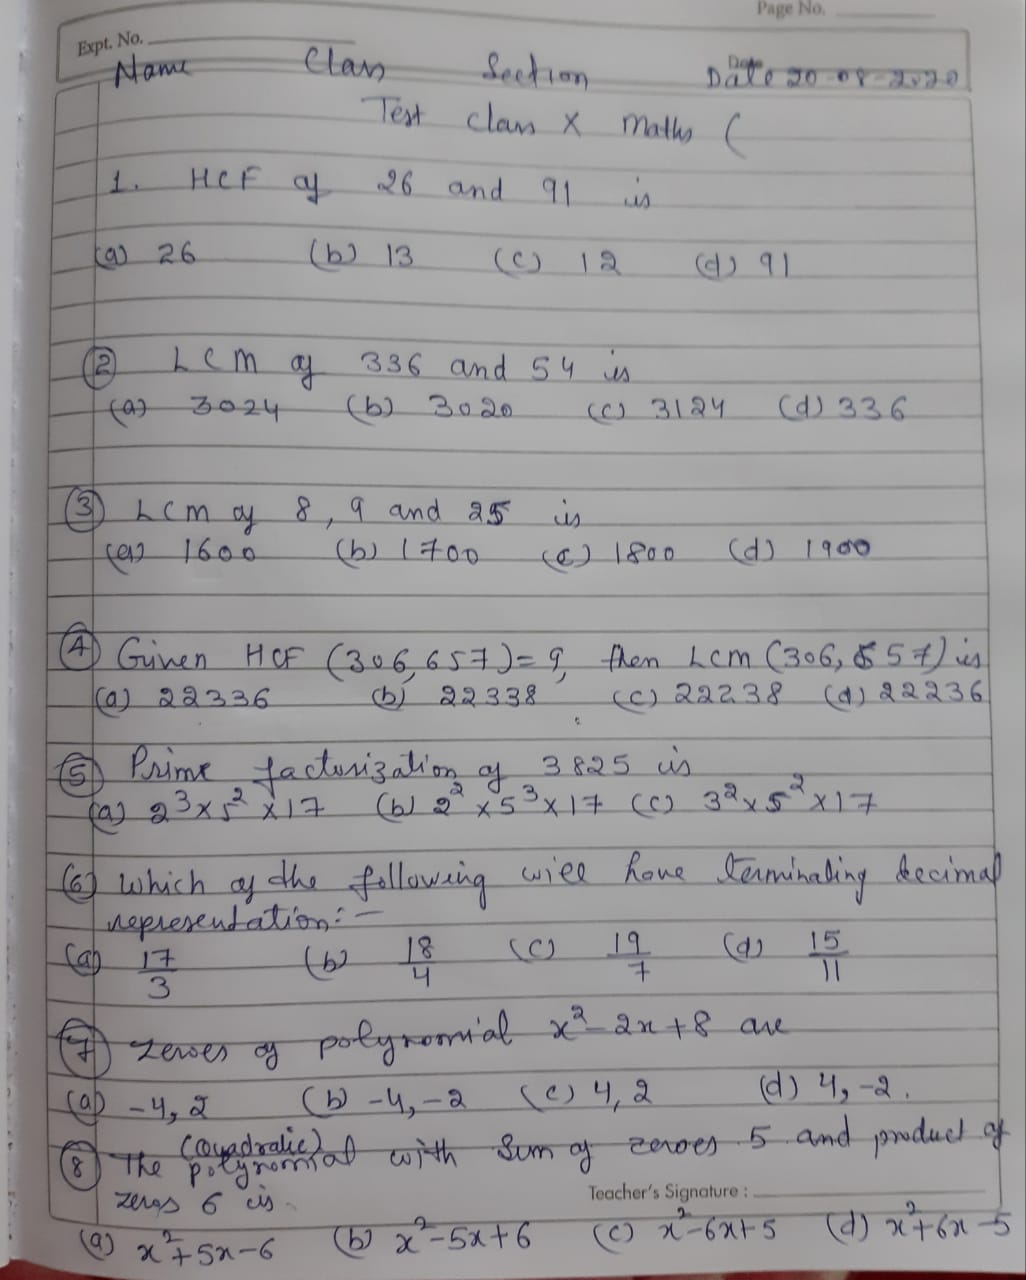 Page No.
Expt. No.
Name Class Section Date 20-08-2020
Test class X Maths (
1. HCF of 26 and 91 is
(a) 26 (b) 13 (c) 12 (d) 91
(2) LCM of 336 and 54 is
(a) 3024 (b) 3020 (c) 3124 (d) 336
(3) LCM of 8, 9 and 25 is
(a) 1600 (b) 1700 (c) 1800 (d) 1900
(4) Given HCF (306, 657) = 9, then LCM (306, 657) is
(a) 22336 (b) 22338 (c) 22238 (d) 22236
(5) Prime factorization of 3825 is
(a) 2³ x 5² x 17 (b) 2² x 5³ x 17 (c) 3² x 5² x 17
(6) Which of the following will have terminating decimal
representation:-
(a) 17/3 (b) 18/4 (c) 19/7 (d) 15/11
(7) Zeroes of polynomial x² - 2x + 8 are
(a) -4, 2 (b) -4, -2 (c) 4, 2 (d) 4, -2.
(8) The (Quadratic) polynomial with Sum of zeroes 5 and product of
zeros 6 is.
Teacher's Signature :
(a) x² + 5x - 6 (b) x² - 5x + 6 (c) x² - 6x + 5 (d) x² + 6x - 5